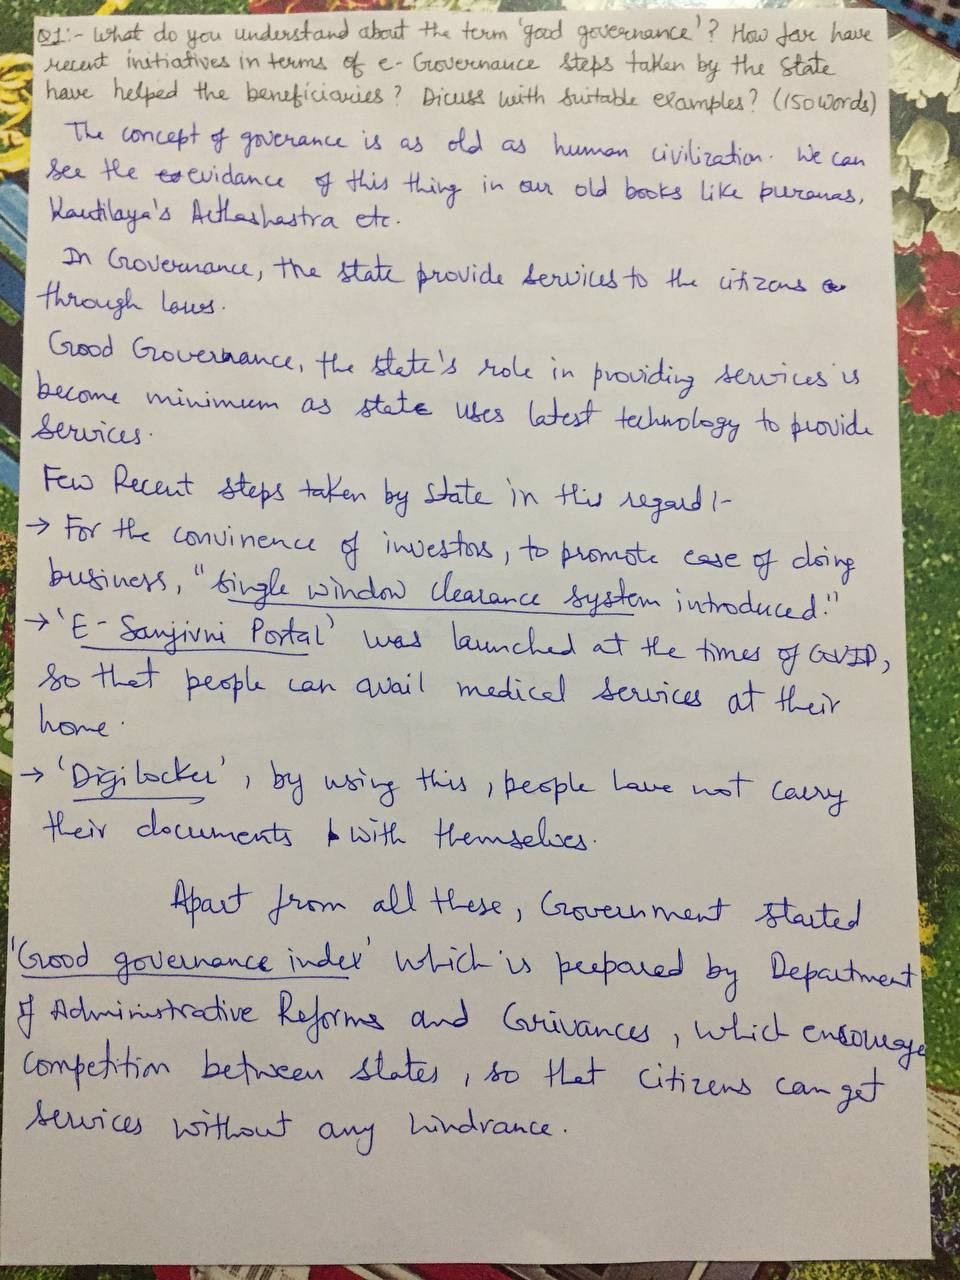 Q1:- What do you understand about the term 'good governance'? How far have
recent initiatives in terms of e-Governance steps taken by the State
have helped the beneficiaries? Dicuss with suitable examples? (150 words)
The concept of goverance is as old as human civilization. We can
see the evidance of this thing in our old books like puranas,
Kautilaya's Arthashastra etc.
In Governance, the state provide services to the citizens
through laws.
Good Governance, the state's role in providing services is
become minimum as state uses latest technology to provide
services.
Few Recent steps taken by state in this regard :-
→ For the convinence of investors, to promote ease of doing
business, "single window clearance system introduced."
→ 'E-Sanjivni Portal' was launched at the times of COVID,
so that people can avail medical services at their
home.
→ 'Digilocker', by using this, people have not carry
their documents with themselves.
Apart from all these, Government started
'Good governance index' which is prepared by Department
of Administrative Reforms and Grivances, which encourage
competition between states, so that citizens can get
services without any hindrance.